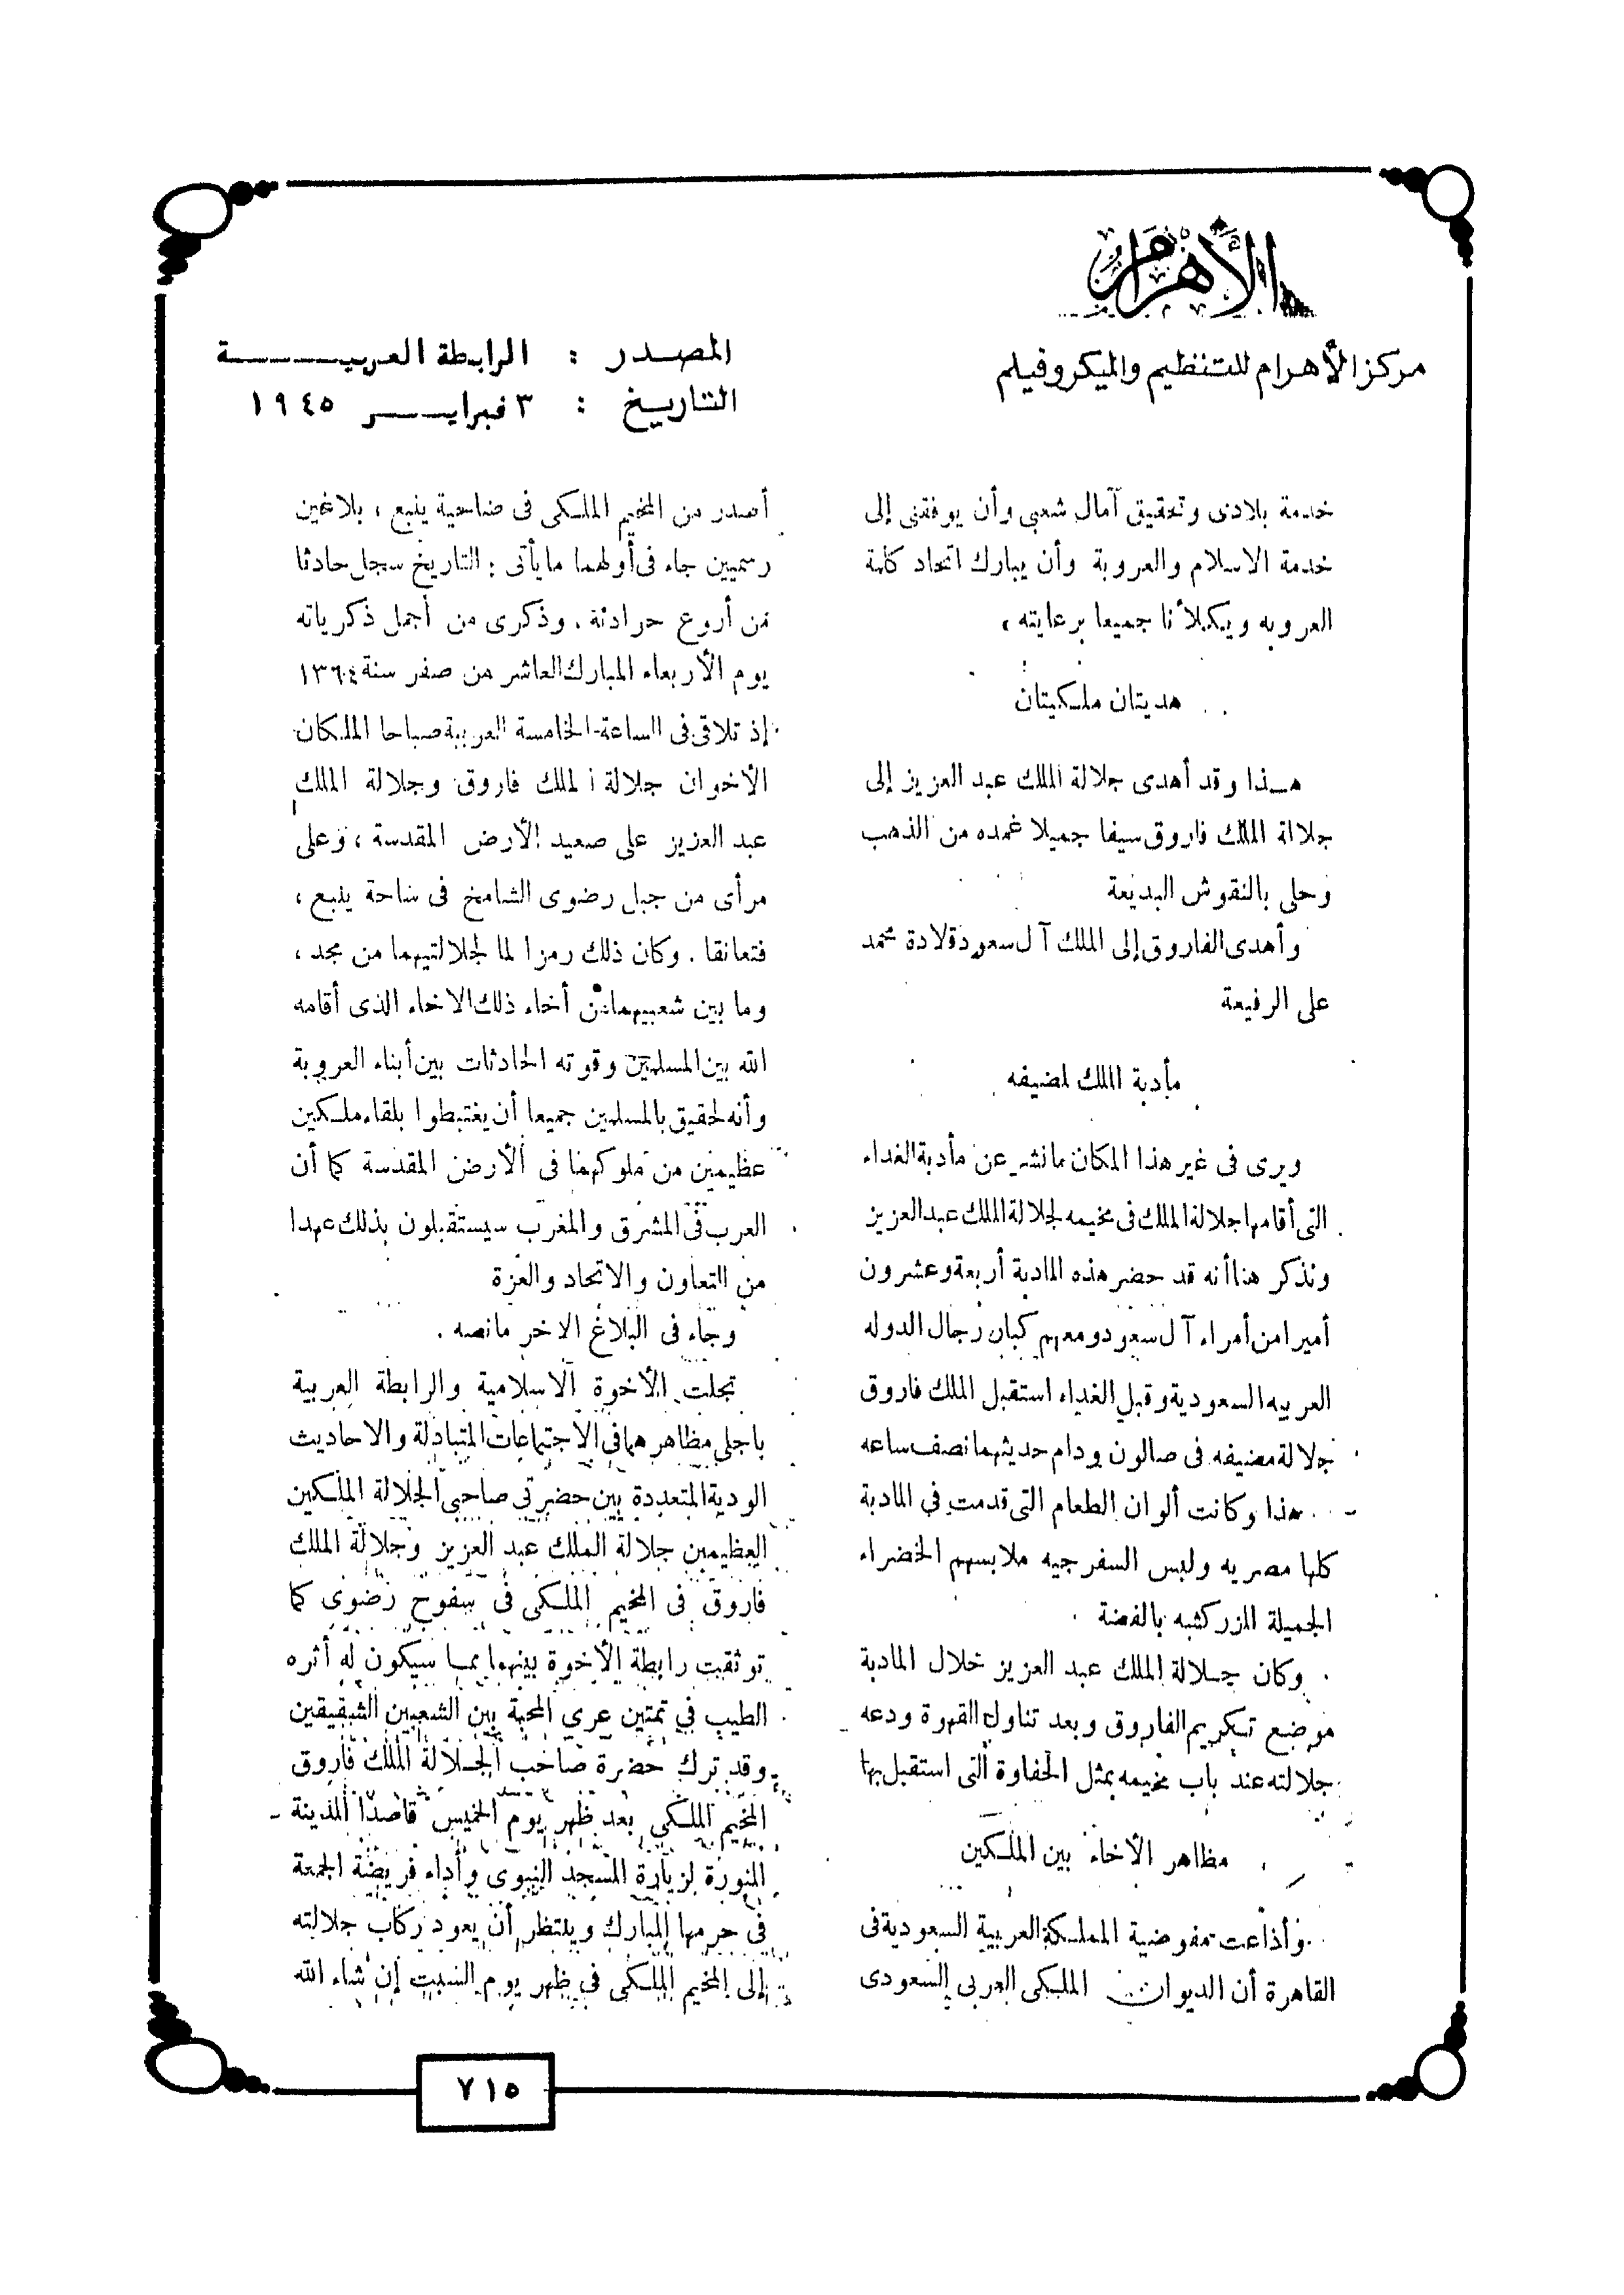 الأهرام
مركز الأهرام للتنظيم والميكروفيلم
المصدر : الرابطة العربية
التاريخ : ٣ فبراير ١٩٤٥
خدمة بلادى وتحقيق آمال شعبي وأن يوفقنى إلى
خدمة الاسلام والعروبة وأن يبارك اتحاد كلمة
العروبه ويكلأنا جميعا برعايته ،
هديتان ملكيتان
هذا وقد أهدى جلالة الملك عبد العزيز إلى
جلالة الملك فاروق سيفا جميلا غمده من الذهب
وحلى بالنقوش البديعة
وأهدى الفاروق إلى الملك آل سعود قلادة محمد
على الرفيعة
مأدبة الملك لضيفه
ويرى فى غير هذا المكان مانشر عن مأدبة الغداء
التى أقامها جلالة الملك فى مخيمه لجلالة الملك عبد العزيز
ونذكر هنا أنه قد حضر هذه المادبة أربعة وعشرون
أميرا من أمراء آل سعود ومعهم كبار رجال الدوله
العربيه السعودية وقبل الغداء استقبل الملك فاروق
جلالة مضيفه فى صالون ودام حديثهما نصف ساعه
هذا وكانت ألوان الطعام التى قدمت فى المادبة
كلها مصريه ولبس السفرجيه ملابسهم الخضراء
الجميلة المزركشه بالفضة
وكان جلالة الملك عبد العزيز خلال المادبة
موضع تكريم الفاروق وبعد تناول القهوة ودعه
جلالته عند باب مخيمه بمثل الحفاوة التى استقبل بها
مظاهر الأخاء بين الملكين
وأذاعت مفوضية المملكة العربية السعودية فى
القاهرة أن الديوان الملكى العربى السعودى
أصدر من المخيم الملكى فى ضاحية ينبع ، بلاغين
رسميين جاء فى أولهما مايأتى : التاريخ سجل حادثا
من أروع حوادثة . وذكرى من أجمل ذكرياته
يوم الأربعاء المبارك العاشر من صفر سنة ١٣٦٤
إذ تلاقى فى الساعة الخامسة العربية صباحا الملكان
الأخوان جلالة الملك فاروق وجلالة الملك
عبد العزيز على صعيد الأرض المقدسة ، وعلى
مرأى من جبل رضوى الشامخ فى ساحة ينبع ،
فتعانقا . وكان ذلك رمزا لما لجلالتيهما من مجد ،
وما بين شعبيهما من أخاء ذلك الاخاء الذى أقامه
الله بين المسلمين وقوته الحادثات بين أبناء العروبة
وأنه لحقيق بالمسلمين جميعا أن يغتبطوا بلقاء ملكين
عظيمين من ملوكهما فى الأرض المقدسة كما أن
العرب فى المشرق والمغرب سيستقبلون بذلك عهدا
من التعاون والاتحاد والعزة
وجاء فى البلاغ الاخر مانصه .
تجلت الأخوة الاسلامية والرابطة العربية
باجلى مظاهرهما فى الاجتماعات المتبادلة والاحاديث
الودية المتعددة بين حضرتى صاحبى الجلالة الملكين
العظيمين جلالة الملك عبد العزيز وجلالة الملك
فاروق فى المخيم الملكى فى سفوح رضوى كما
توثقت رابطة الأخوة بينهما بما سيكون له أثره
الطيب فى تمتين عرى المحبة بين الشعبين الشقيقين
وقد ترك حضرة صاحب الجلالة الملك فاروق
المخيم الملكى بعد ظهر يوم الخميس قاصدا المدينة
المنورة لزيارة المسجد النبوى وأداء فريضة الجمعة
فى حرمها المبارك وينتظر أن يعود ركاب جلالته
إلى المخيم الملكى فى ظهر يوم السبت إن شاء الله
٧١٥